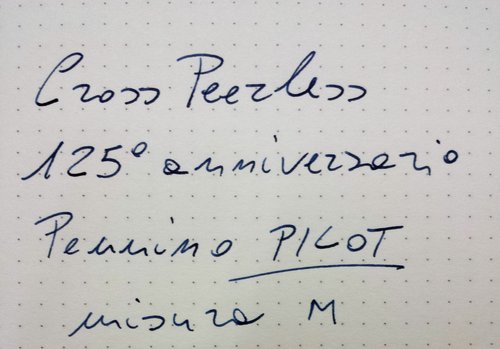 Cross Peerless
125° anniversario
Pennino PILOT
misura M